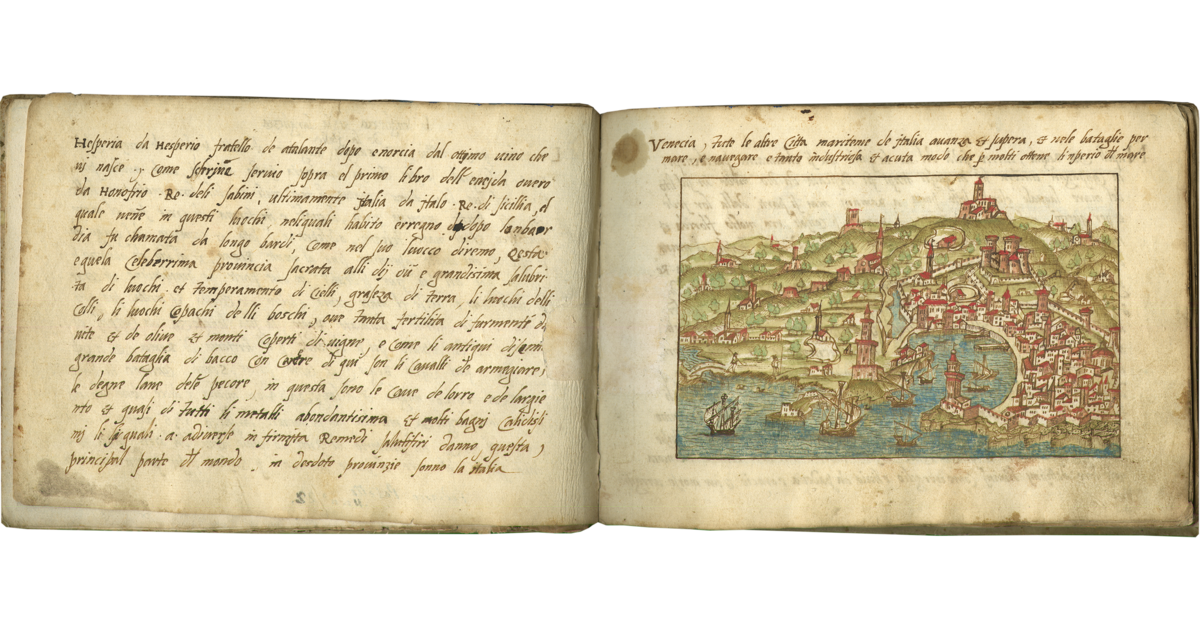 Hesperia da Hesperio fratello de atalante depe enorcia dal ottimo uino che
ni nasce, Come scriue Seruio sopra el primo libro dell eneida ouero
da Honofrio . Re . deli sabini, ultimamente Italia da Italo . Re . di sicillia, el
quale uene in questi luochi neliquali habito erregno dopo lonbar
dia fu chamata da longo bardi, Come nel suo luocco diremo, Qesta
equela Celeberrima prouincia sacrata alli dij e grandisima salubri
ta di luochi . et temperamento di Cielli, graseza di terra, li luochi delli
Colli, li luochi Opachi delli boschi, oue tanta fertilita di furmente di
uite & de oliue & monti Coperti di uigne, e Come li antiqui
grande bataglia di bacco Con di qui son li Caualli de armegiare,
le degne lane dele pecore, in questa sono le Caue de lorro e de largie
nto & quasi di tutti li metalli abondantisima & molti bagni Calidisi
mi li quali . a . adiuerse infirmita Remedi salutifiri danno, questa,
principal parte del mondo, in deidoto prouinzie sonno la italia
Venecia, tute le altre Citta maritime de italia auanza & supera, & nele bataglie per
mare, e nauegare e tanto industriosa & acuta modo che p molti ottene linperio del mare